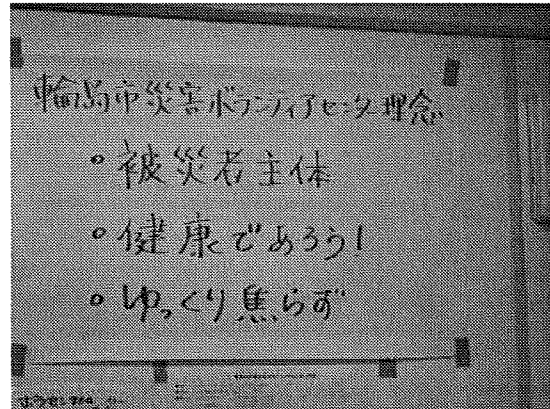 輪島市災害ボランティアセンター理念
。被災者主体
。健康であろう!
。ゆっくり焦らず